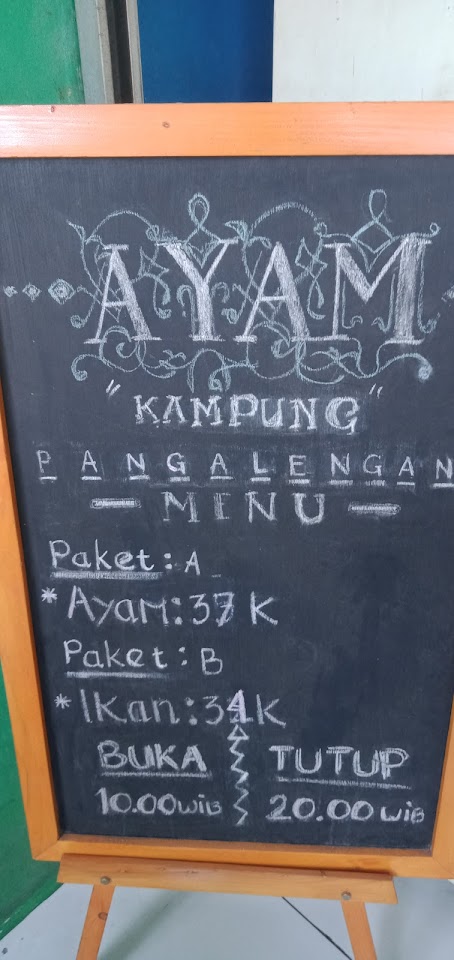 AYAM
"KAMPUNG"
PANGALENGAN
MENU
Paket : A
* Ayam : 37 K
Paket : B
* Ikan : 34K
BUKA
TUTUP
10.00 WIB
20.00 WIB